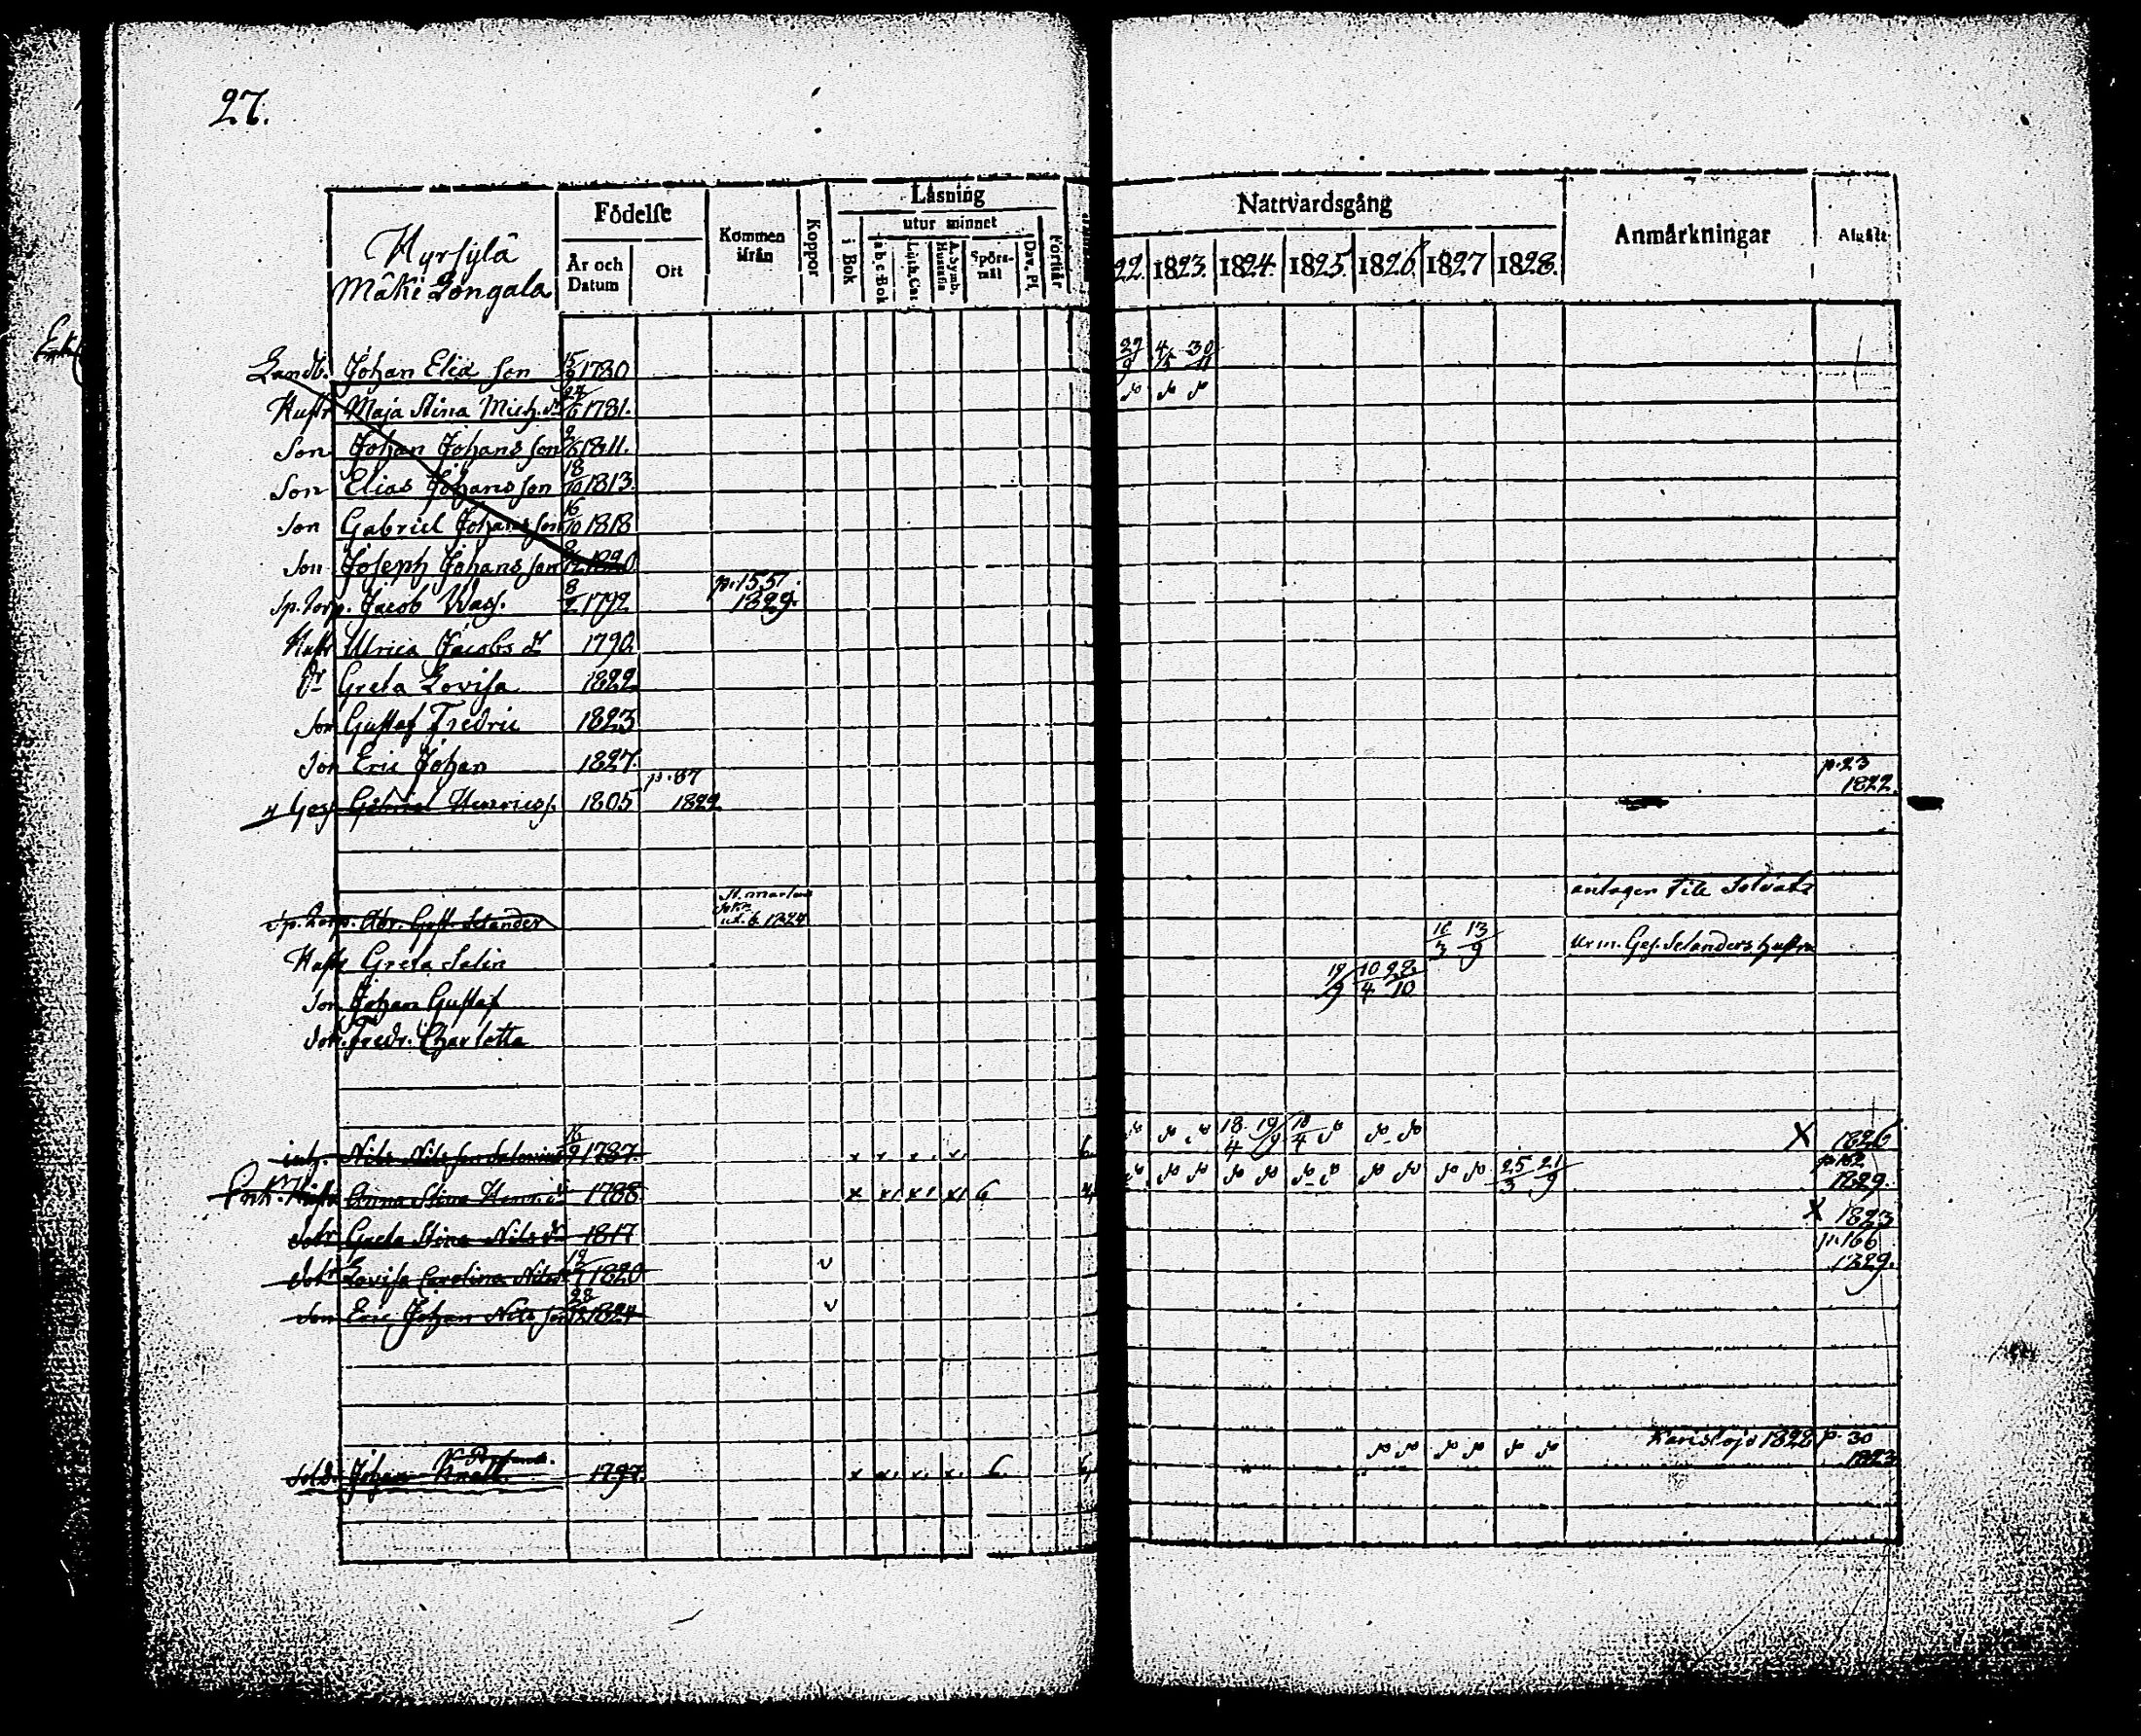 27.
Hyrsylä
Mäki Longala
Födelse
År och Datum
Ort
Kommen ifrån
Koppor
Läsning
i Bok
utur minnet
a b c-Bok
Luth. Cat.
A. Symb. Hustafla
Spörs-mål
Dav. Ps.
Förstår
Nattvardsgång
22. 1823. 1824. 1825. 1826. 1827 1828.
Anmärkningar
Afgått
Landb. Johan Elia son 15 1780 29/9 4/5 30/11
Hustr Maja Stina Mich. dr 1781. do do do
Son Johan Johans son 1811.
Son Elias Johans son 18/10 1813.
Son Gabriel Johans son 16/10 1818
Son Joseph Johans son 1820
Sp. torp. Jacob 8/2 1792 p. 155. 1829.
Hustr Ulrica Jacobs dr 1790.
Dr Greta Lovisa 1822
Son Gustaf Fredric 1823
Son Eric Johan 1827.
Gabriel Henricss. 1805 p. 87 1822 p. 23 1822.
Sp. torp. Abr. Gust. Selander St. Martens antagen till Soldat
Hustr Greta Salin 16/3 13/9 Selanders hustru
Son Johan Gustaf 19/9 10/4 22/10
Dotr. Fredr. Charlotta
inh. Nils Nils son 16/9 1787. x x x. x. 6. do do do 18/4 19/9 18/4 do do do X 1826
Enk. Hustr Anna Stina Henr. dr 1788 x x1 x1 x1 6 do do do do do do do do do do 25/3 21/9 p. 162 1829.
Dotr Greta Stina Nils dr 1817 X 1823
Dotr Lovisa Carolina Nils dr 1820 v p. 166 1829.
Son Eric Johan Nils son 28/12 1824 v
Sold. Johan Knall. 1797. x x. x. x. 6. 6 do do do do do do Karislojo 1822 p. 30 1823